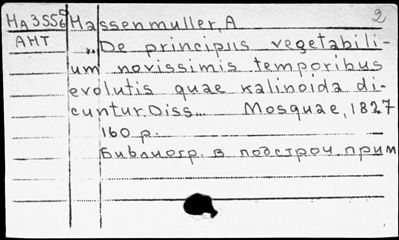 НА3556 Hassenmuller, A 2
АНТ „De principiis vegetabili-
um novissimis temporibus
evolutis quae kalinoida di-
cuntur. Diss... Mosquae, 1827
160 p.
Библиогр. в подстроч прим